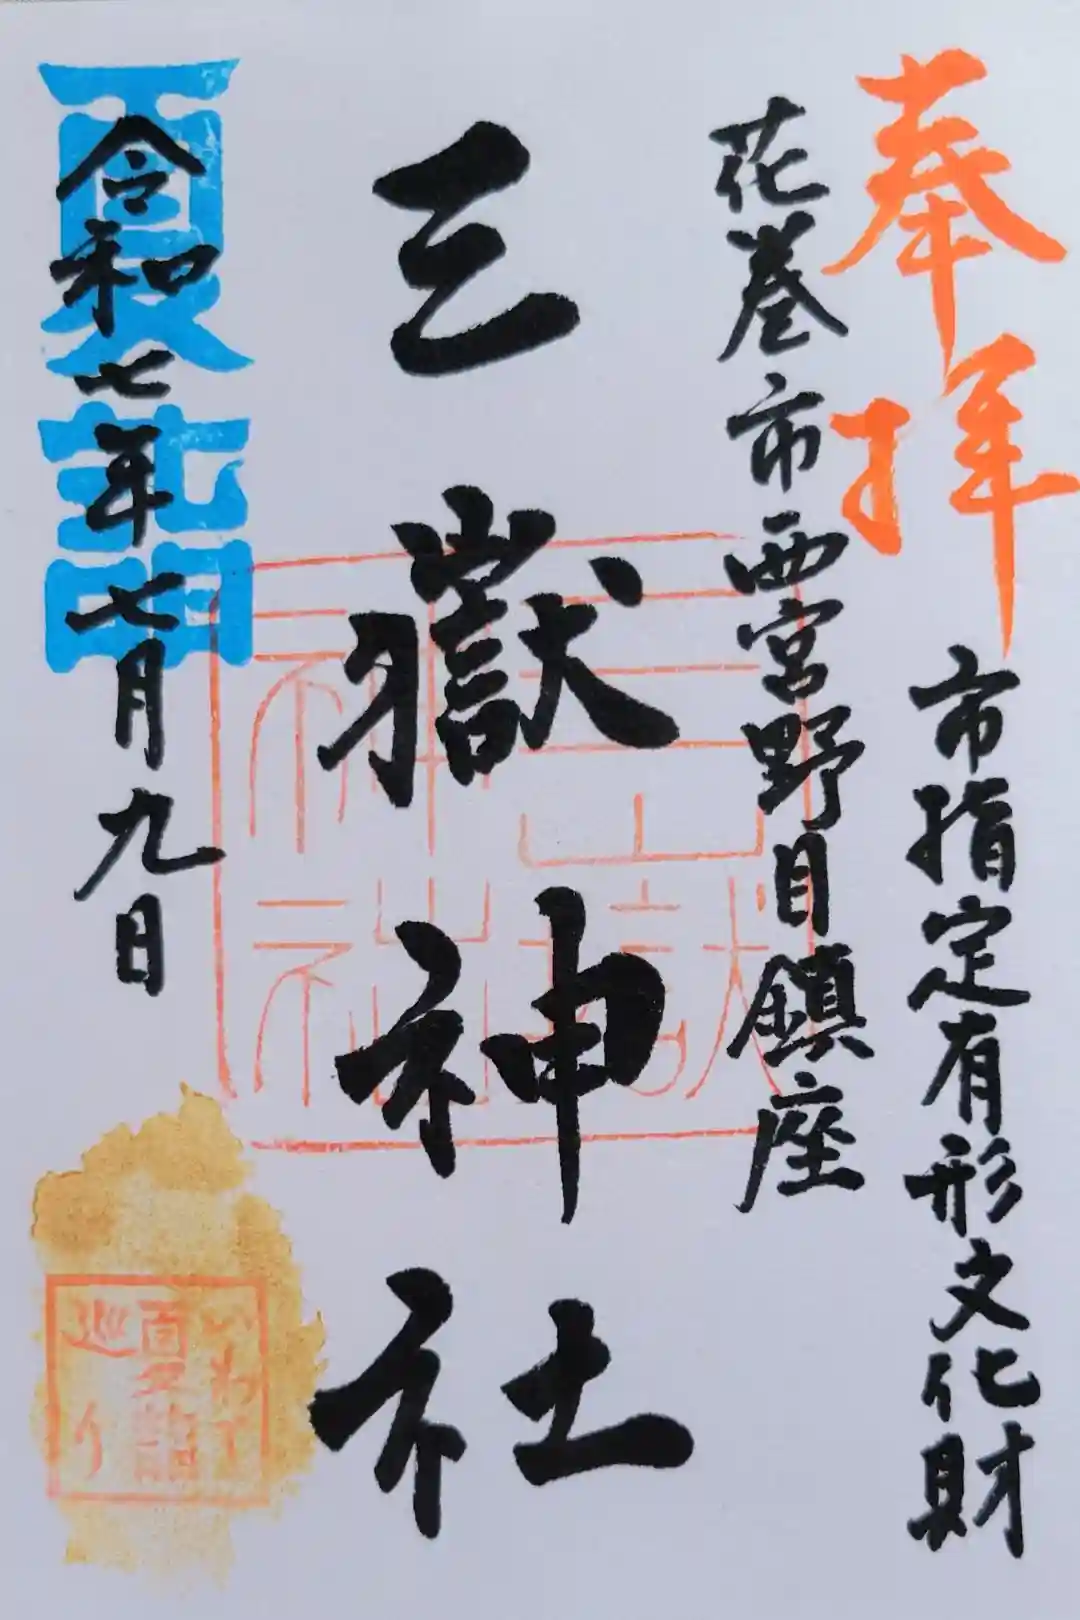 奉拝
市指定有形文化財
花巻市西宮野目鎮座
三嶽神社
三嶽神社
夏詣
令和七年七月九日
いわて
夏詣
巡り